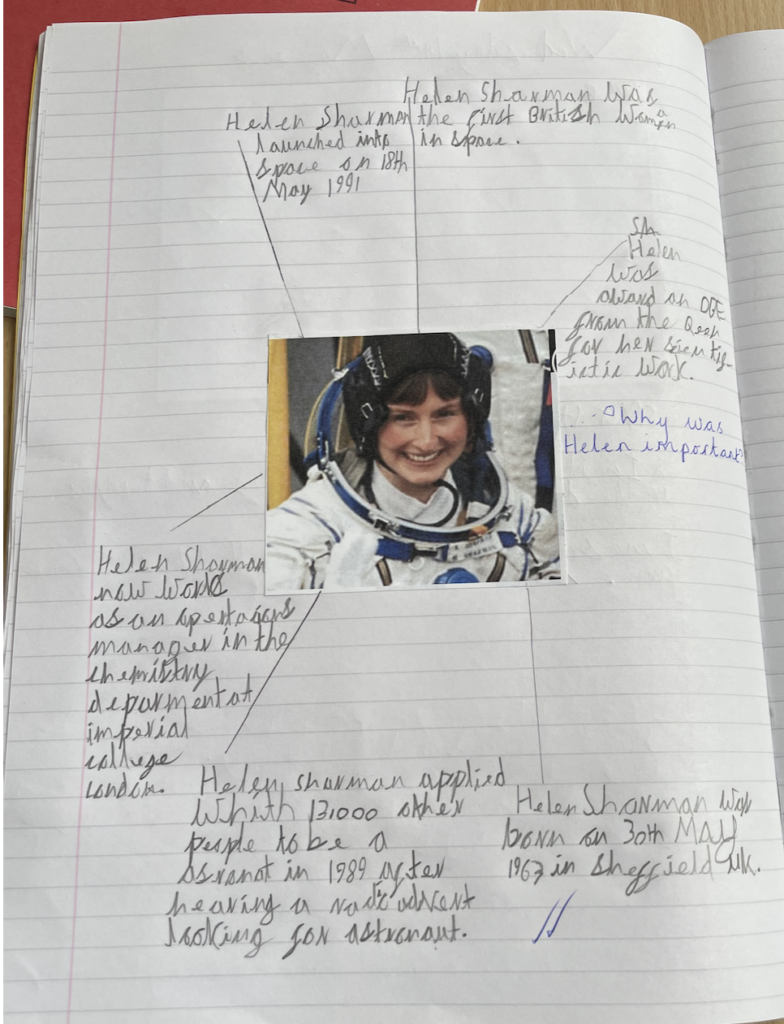 Helen Sharman
launched into
space on 18th
May 1991
Helen Sharman was
the first British Woman
in space.
Sh
Helen
was
award an OBE
from the Qeen
for her scientif-
istic work.
Why was
Helen important?
Helen Sharman
now works
as an opertaions
manager in the
chemistry
deparment at
imperial
college
London.
Helen sharman applied
Whith 131000 other
people to be a
asronot in 1989 after
hearing a radio advert
looking for astronaut.
Helen Sharman was
born on 30th May
1963 in Sheffield UK.